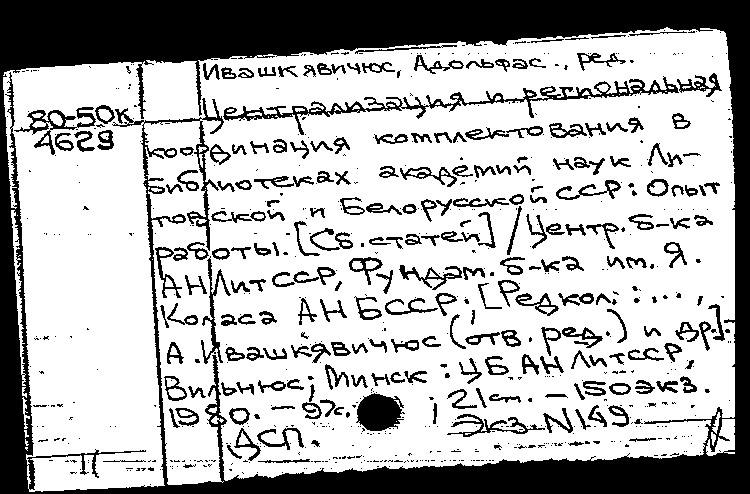 Ивашкявичюс, Адольфас., ред.
80-50к
4629
Централизация и региональная
координация комплектования в
библиотеках академий наук Ли-
товской и Белорусской ССР: Опыт
работы. [Сб. статей] / Центр. б-ка
АН ЛитССР, Фундам. б-ка им. Я.
Коласа АН БССР; [Редкол.: ...,
А. Ивашкявичюс (отв. ред.) и др.].-
Вильнюс; Минск: ЦБ АН ЛитССР,
1980. - 97с. ; 21см. - 150экз.
Экз. N149
ДСП.